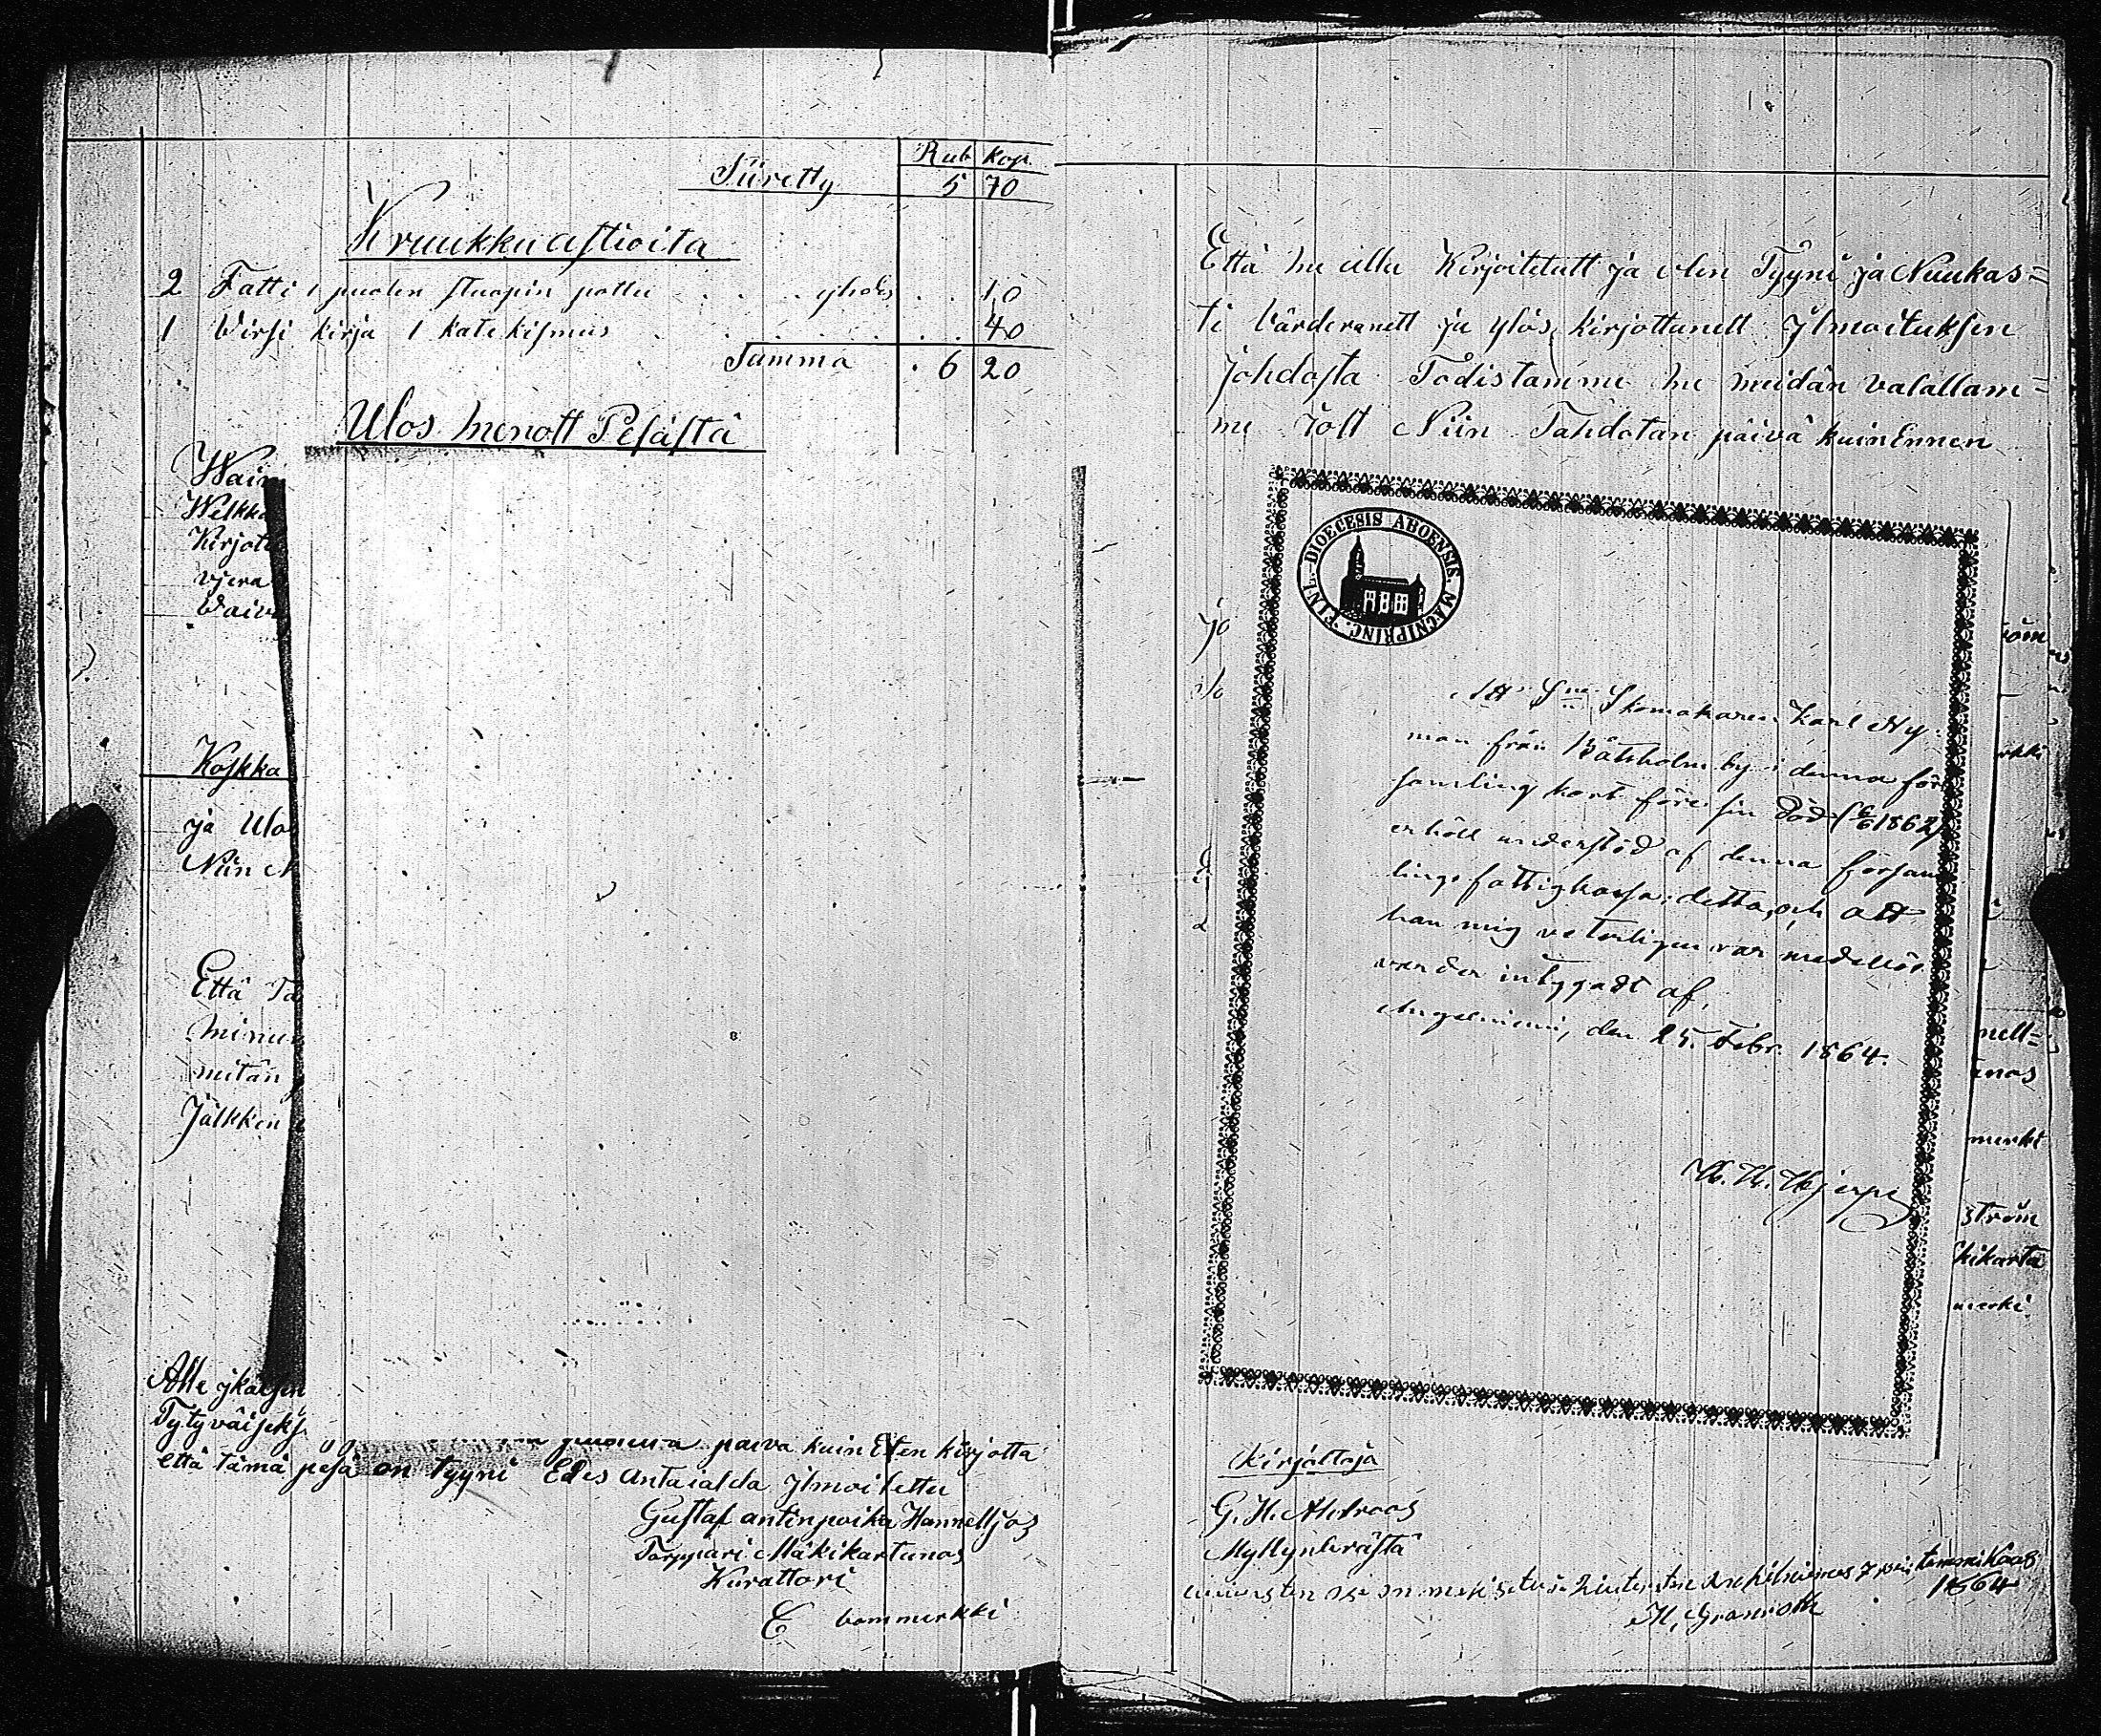 Rub kop.
Siiretty 5 70
Kruukku astioita
2 Fatti 1 puolen stuopin pottu . . . yhdes . . 10
1 Virsi kirja 1 katekismus . . . 40
Summa . 6 20
Ulos menott Pesästä
Wain
Welkka
Kirjott
vjera
Vaiva
Koskka
ja Ulos
Niin
Että Tä
minun
mitän
Jälkken
Alle
Tytyväiseks
päivä kuin Eten kirjotta
että tämä pesä on tyyni Edes antaialda ylmoitettu
Gustaf antinpoika Hannelljos
Torppari Mäkikartunos
Kurattori
bommerkki
Että me allu Kirjoitetutt ja olen Tyyni ja Nuukas=
ti Värderanett ja ylös kirjottanett ylmoituksen
Johdosta Todistamme me meidän valallam=
me Jott Niin Tahdotan päivä kuin Ennen
Jo
DIOECESIS ABOENSIS. MAGNI PRINC. FINL.
Att Skomakaren Karl Ny-
man från Båtsholm by i denna för
samling kort före sin död 1862
erhöll understöd af denna försam
lings fattigkassa; detta, och att
han mig veterligen var medellös
varder intygadt af,
Angelniemi, den 25. Febr. 1864.
Hjerpe
röm
rkki
nell=
unos
merki
ström
kikarta
merki
Kirjottaja
G. H. Ahlroos
Myllynkräftä
tammikuus
1864
H, Granroth